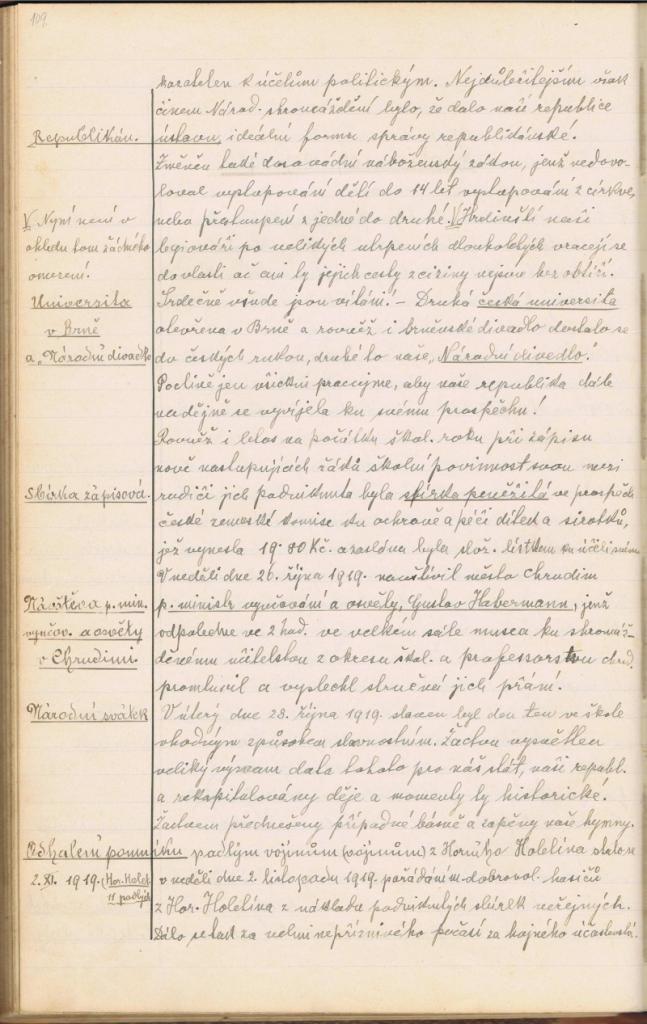 109.
k účelům politickým. Nejdůležitějším však
činem Národ. shromáždění bylo, že dalo naší republice
Republikán.
ústavu, ideální formu správy republikánské.
Změněn také dosavádní náboženský zákon, jenž nedovo-
loval vystupování dětí do 14 let vystupování z církve,
V Nyní není v
nebo přestoupení z jedné do druhé. V Hrdinští naši
ohledu tom žádného
legionáři po nelidských útrapách dlouholetých vracejí se
omezení.
do vlasti ač ani ty jejich cesty z ciziny nejsou bez obtíží.
Universita
Srdečně všude jsou vítáni! – Druhá česká universita
v Brně
otevřena v Brně a rovněž i brněnské divadlo dostalo se
a „Národní divadlo
do českých rukou, druhé to naše „Národní divadlo".
Poctivě jen všichni pracujme, aby naše republika dále
nadějně se vyvíjela ku svému prospěchu!
Rovněž i letos na počátku škol. roku při zápisu
nově nastupujících žáků školní povinnost svou mezi
Sbírka zápisová.
rodiči jich podniknuta byla sbírka peněžitá ve prospěch
české zemské komise ku ochraně a péči o dítek a sirotků,
jež vynesla 19·80 Kč. a zaslána byla slož. lístkem ku účeli
V neděli dne 26. října 1919. navštívil město Chrudim
Návštěva p. min.
p. ministr vyučování a osvěty, Gustav Habermann, jenž
vyučov. a osvěty
odpoledne ve 2 hod. ve velkém sále musea ku shromáž-
v Chrudimi.
děnému učitelstvu z okresu škol. a professorstvu chrud.
promluvil a vyslechl stručná jich přání.
Národní svátek
V úterý dne 28. října 1919. slaven byl den ten ve škole
vhodným způsobem slavnostním. Žactvu vysvětlen
veliký význam data tohoto pro náš stát, naši republ.
a rekapitulovány děje a momenty ty historické.
Žactvem předneseny případné básně a zapěny naše hymny.
Odhalení pomníku padlým vojínům (vojínům) z Horního Holetína
2. XI. 1919. (Hor. Holet.
v neděli dne 2. listopadu 1919. pořádáním dobrovol. hasičů
11 padlých
z Hor. Holetína z nákladu podniknutých sbírek veřejných.
Dálo se tak za velmi nepříznivého počasí za hojného účastenství.